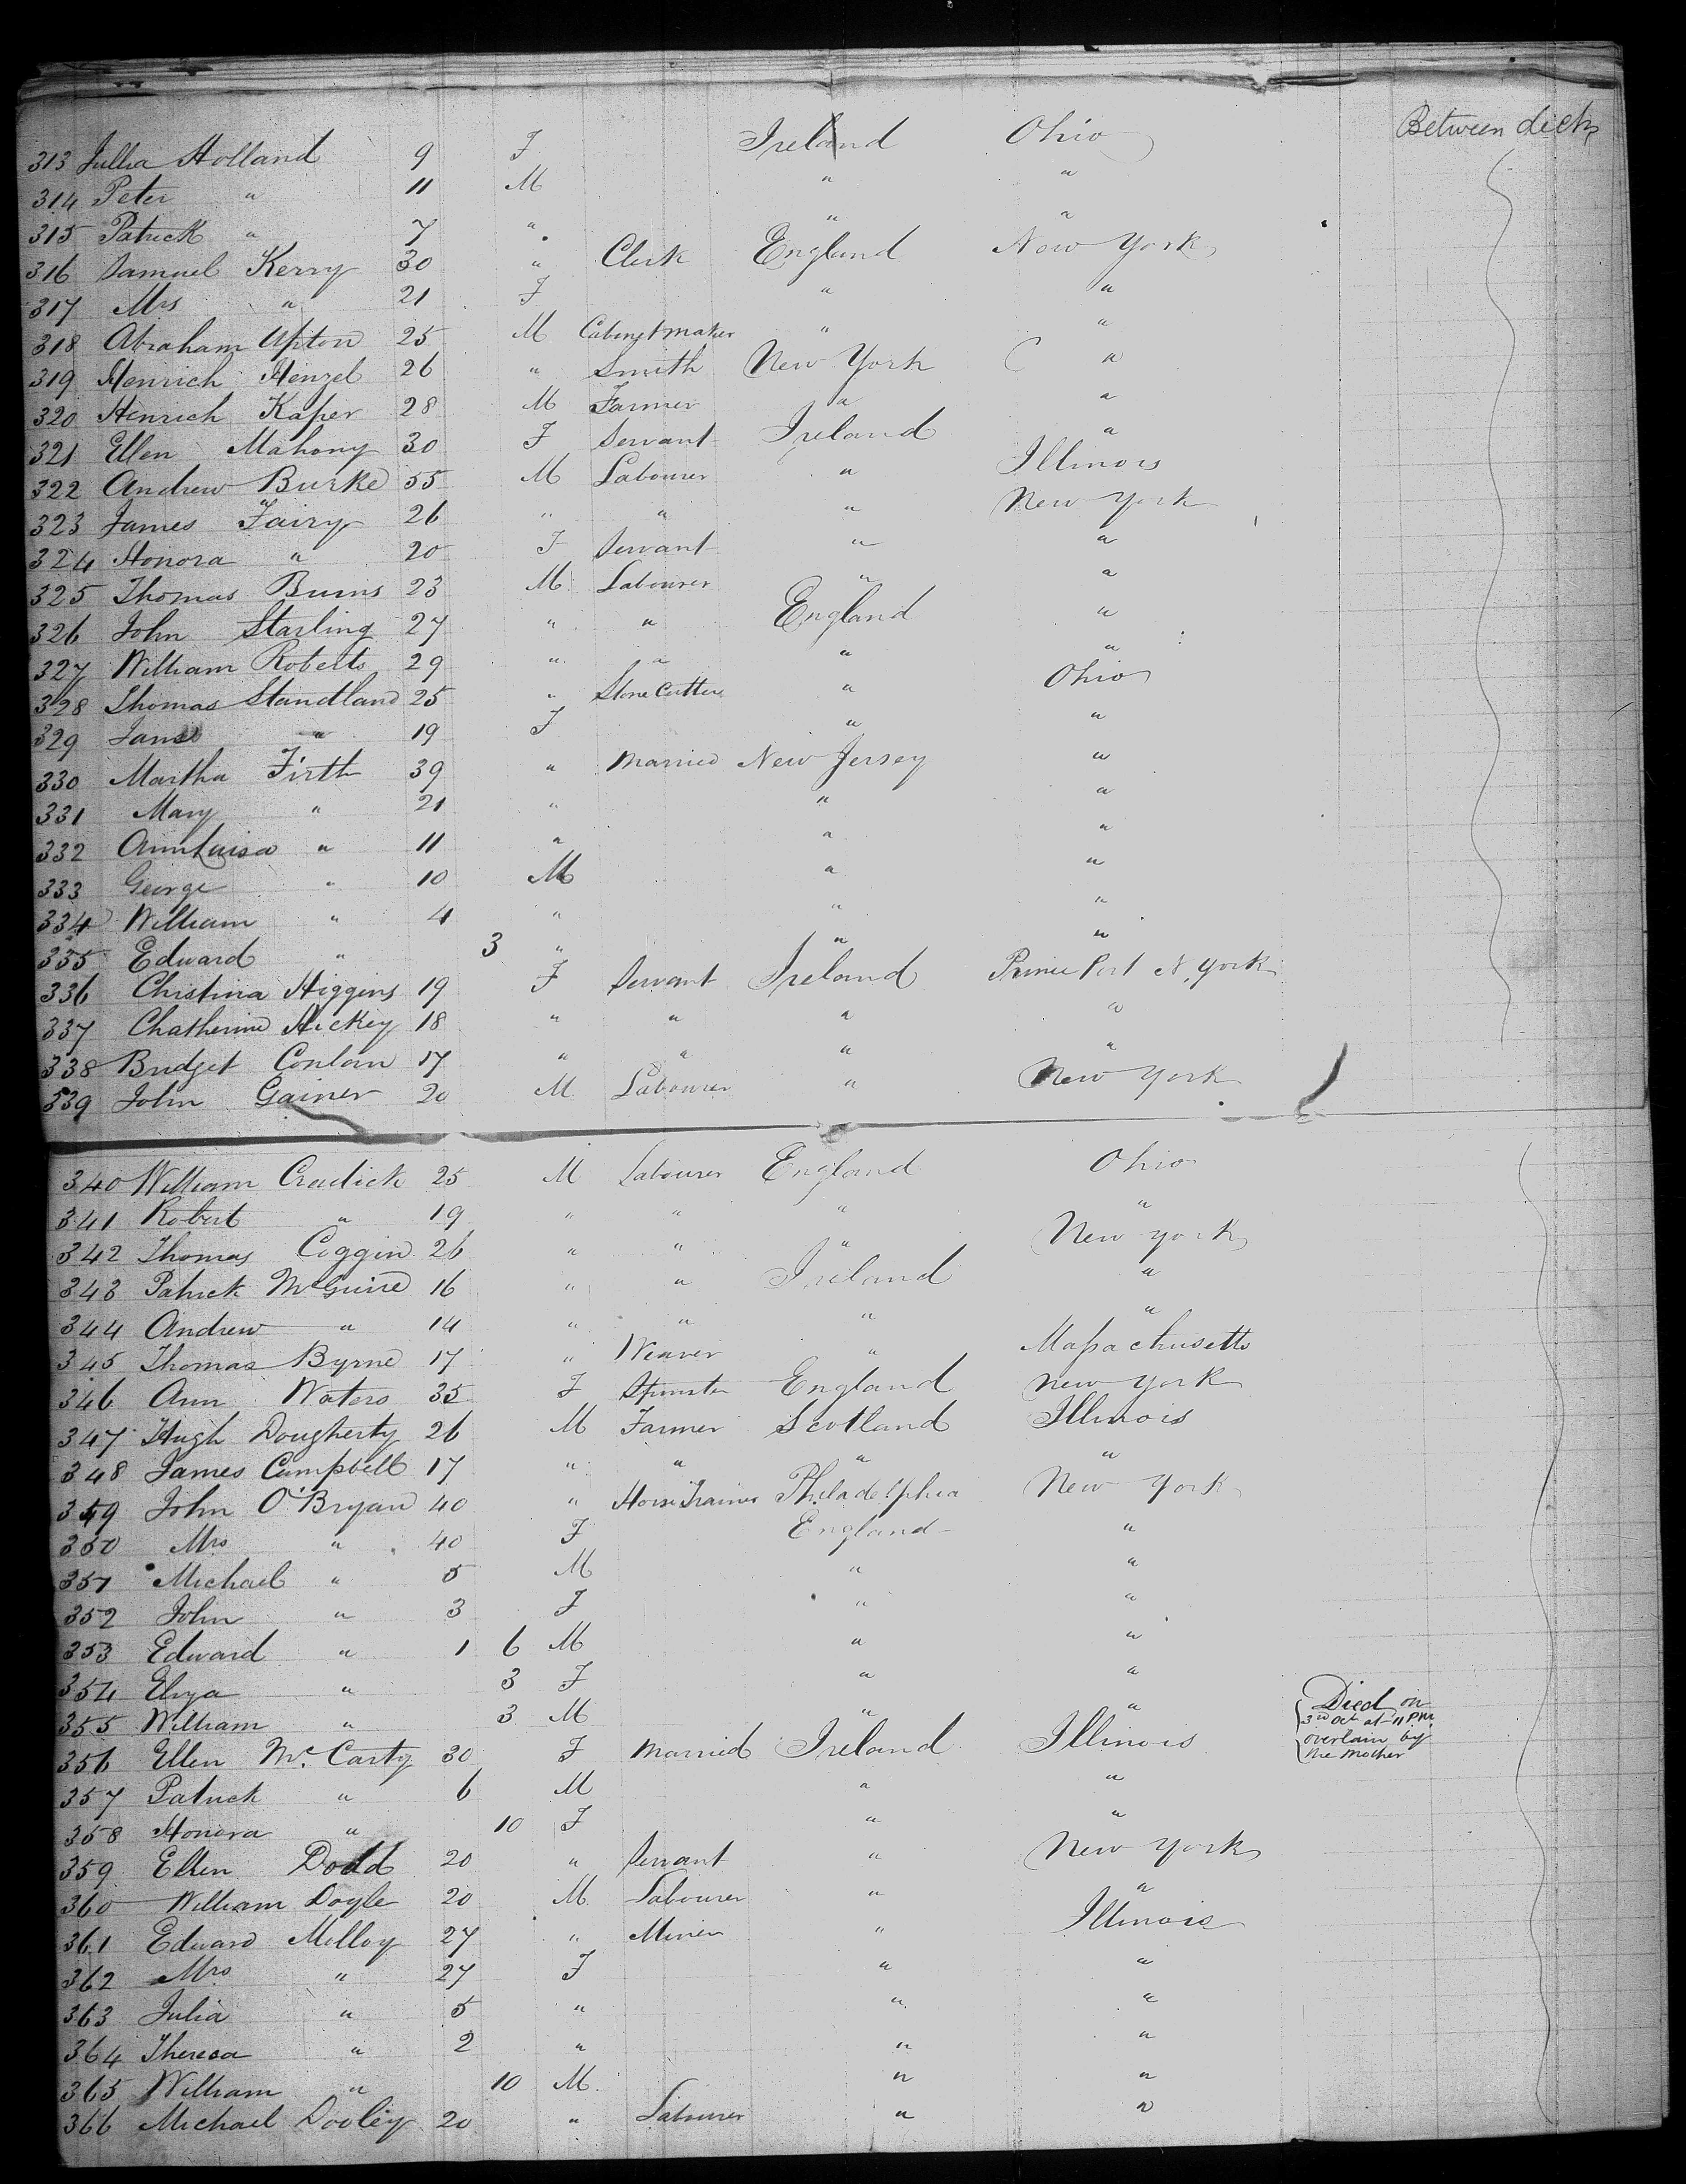 Between decks
313 Jullia Holland 9 F Ireland Ohio
314 Peter " 11 M " "
315 Patrick " 7 " " "
316 Samuel Kerry 30 " Clerk England New York
317 Mrs " 21 F " "
318 Abraham Upton 25 M Cabinetmaker " "
319 Henrich Henzel 26 " Smith New York "
320 Hinrich Kaper 28 M Farmer " "
321 Ellen Mahony 30 F Servant Ireland "
322 Andrew Burke 55 M Labourer " Illinois
323 James Fairy 26 " " " New York
324 Honora " 20 F Servant " "
325 Thomas Burns 23 M Labourer " "
326 John Starling 27 " " England "
327 William Roberts 29 " " " "
328 Thomas Standland 25 " Stone Cutter " Ohio
329 Jane " 19 F " "
330 Martha Firth 39 " Married New Jersey "
331 Mary " 21 " " "
332 AnnLuisa " 11 " " "
333 George " 10 M " "
334 William " 4 " " "
335 Edward " 3 " " "
336 Christina Higgins 19 F Servant Ireland Prince Port N. York
337 Chatherine Hickey 18 " " " "
338 Bridget Conlan 17 " " " "
339 John Gainer 20 M Labourer " New York
340 William Cradick 25 M Labourer England Ohio
341 Robert " 19 " " " "
342 Thomas Coggin 26 " " " New York
343 Patrick McGuire 16 " " Ireland "
344 Andrew " 14 " " " "
345 Thomas Byrne 17 " Weaver " Massachusetts
346 Ann Waters 35 F Spinster England New York
347 Hugh Dougherty 26 M Farmer Scotland Illinois
348 James Campbell 17 " " " "
349 John O'Bryan 40 " Horse Trainer Philadelphia New York
350 Mrs " 40 F England "
351 Michael " 5 M " "
352 John " 3 F " "
353 Edward " 1 6 M " "
354 Eliza " 3 F " "
355 William " 3 M " " Died on 3rd Oct at 11 PM overlain by the mother
356 Ellen McCarty 30 F Married Ireland Illinois
357 Patrick " 6 M " "
358 Honora " 10 F " "
359 Ellen Dodd 20 " Servant " New York
360 William Doyle 20 M Labourer " "
361 Edward Melloy 27 " Miner " Illinois
362 Mrs " 27 F " "
363 Julia " 5 " " "
364 Theresa " 2 " " "
365 William " 10 M " "
366 Michael Dooley 20 " Labourer " "